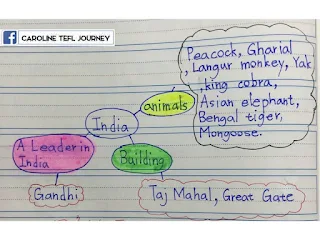 CAROLINE TEFL JOURNEY
Peacock, Gharial
, Langur monkey, Yak
, king cobra,
Asian elephant,
Bengal tiger,
Mongoose.
animals
India
A Leader in
India
Building
Gandhi
Taj Mahal, Great Gate